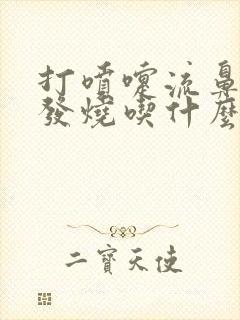 打噴嚏流鼻
發燒喫什麼
二寶天使